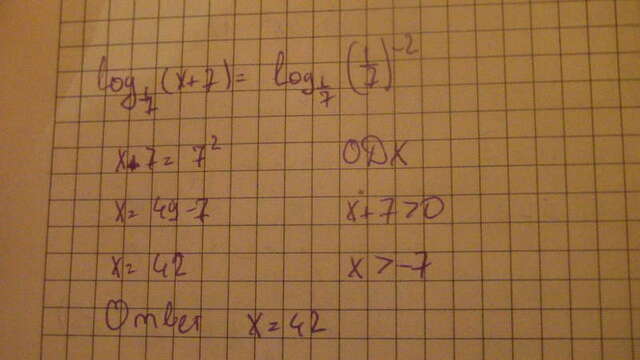 log_{1/7}(x+7) = log_{1/7}(1/7)^{-2}
x+7 = 7² ОДХ
x = 49-7 x+7>0
x = 42 x>-7
Ответ x=42